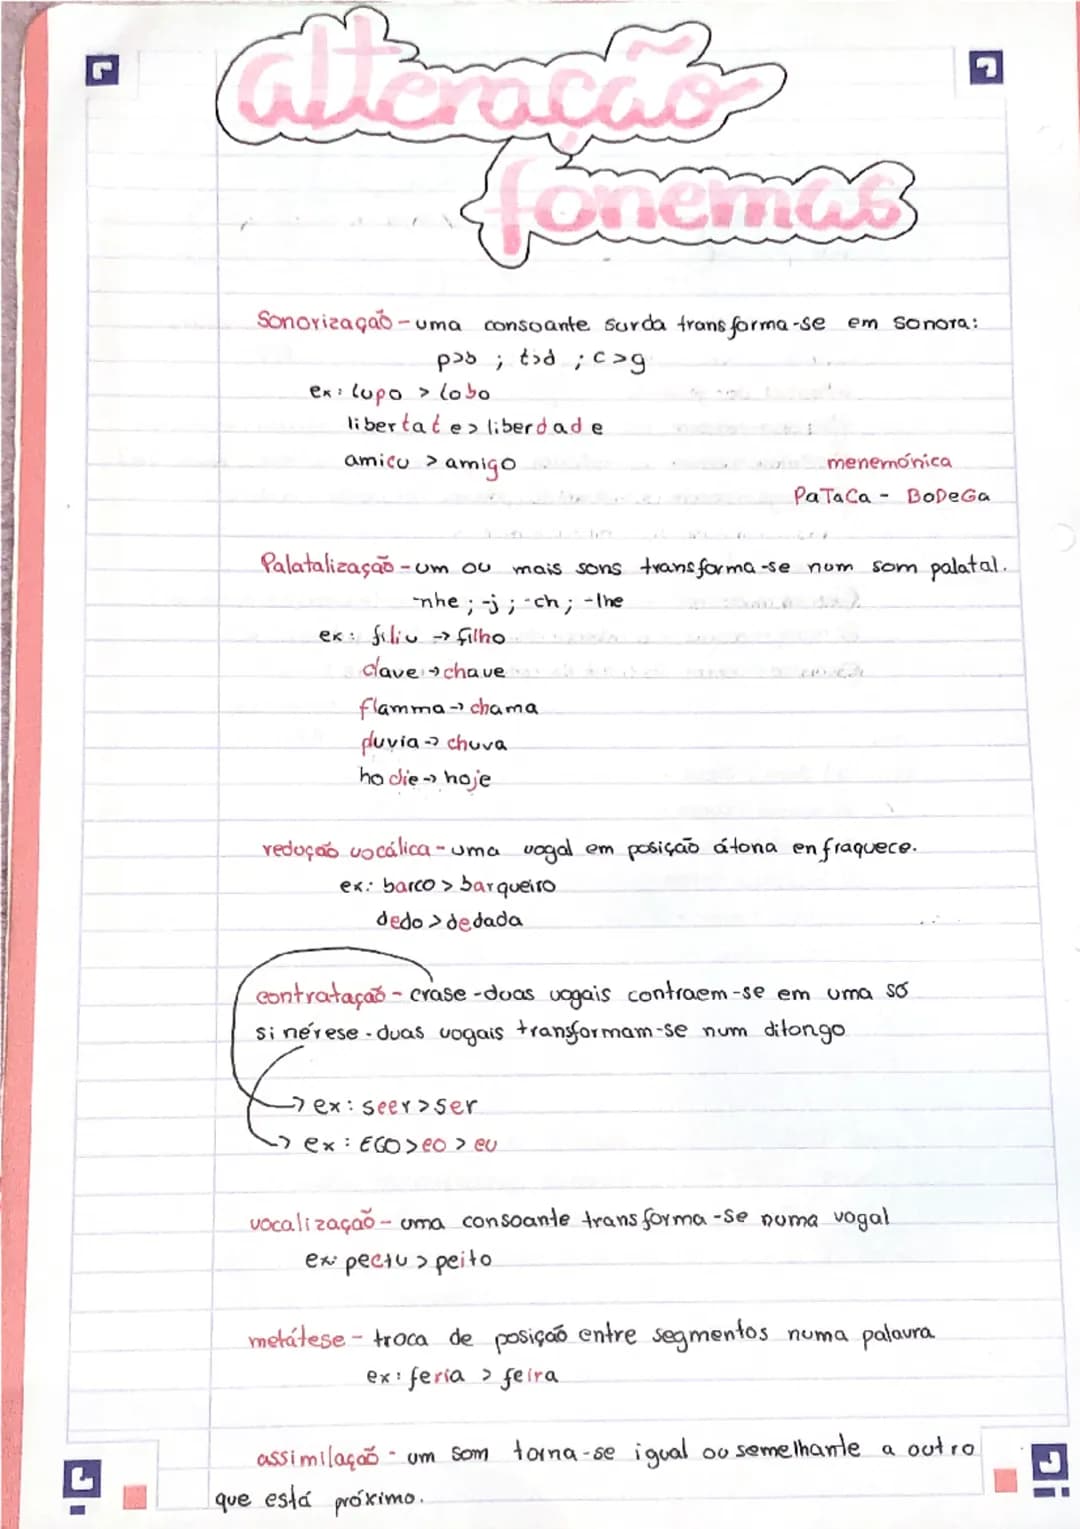 alteração
fonemas
Sonorização - uma consoante surda transforma-se em sonora:
p>b ; t>d ; c>g
ex: lupo > lobo
libertate > liberdade
amicu > amigo
menemónica
PaTaCa - BoDeGa
Palatalização - um ou mais sons transforma-se num som palatal.
-nhe ; -j ; -ch ; -lhe
ex: filiu → filho
clave → chave
flamma → chama
pluvia → chuva
hodie → hoje
redução vocálica - uma vogal em posição átona enfraquece.
ex.: barco > barqueiro
dedo > dedada
contratação - crase - duas vogais contraem-se em uma só
sinérese - duas vogais transformam-se num ditongo
→ ex: seer > ser
→ ex: EGO > eo > eu
vocalização - uma consoante transforma-se numa vogal
ex: pectu > peito
metátese - troca de posição entre segmentos numa palavra
ex: feria > feira
assimilação - um som torna-se igual ou semelhante a outro
que está próximo.